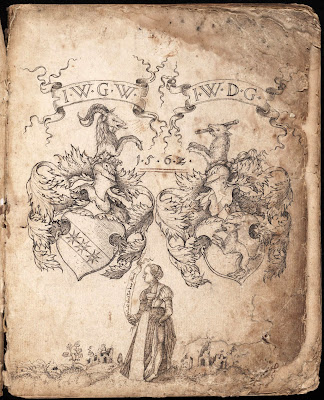 I·W·G·W·
I·W·D·G·
1·5·6·2·